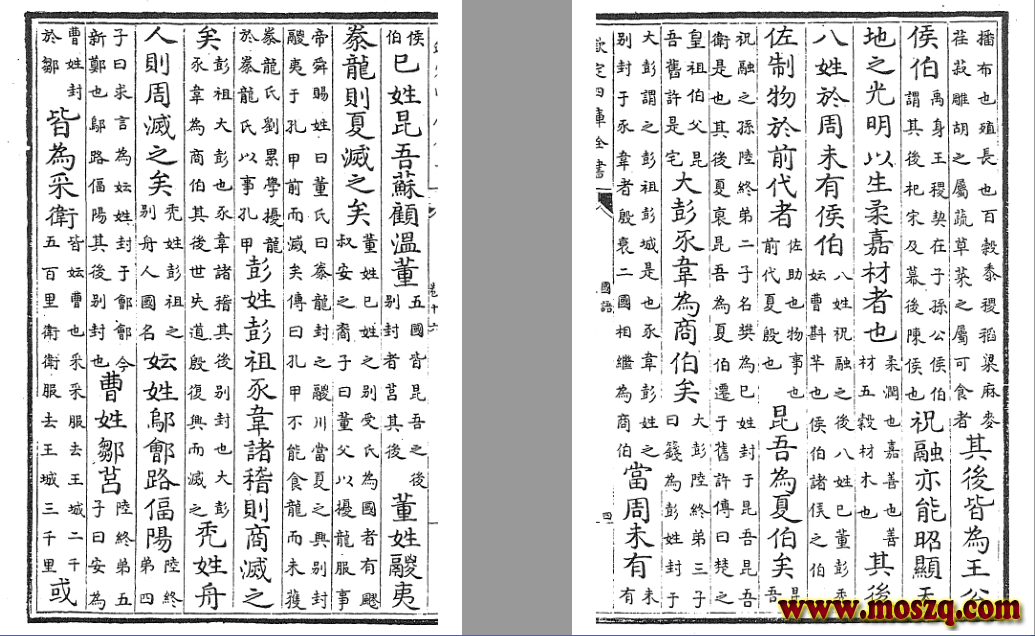 播布也殖長也百穀黍稷稻粱麻麥荏菽雕胡之屬蔬草菜之屬可食者其後皆為王公
侯伯禹身王稷契在子孫公侯伯謂其後杞宋及幕後陳侯也祝融亦能昭顯天
地之光明以生柔嘉材者也柔潤也嘉善也善材五穀材木也其後
八姓於周未有侯伯八姓祝融之後八姓己董彭禿妘曹斟羋也侯伯諸侯之伯
佐制物於前代者佐助也物事也前代夏殷也昆吾為夏伯矣昆吾
祝融之孫陸終弟二子名樊為己姓封于昆吾昆吾衛是也其後夏衰昆吾為夏伯遷于舊許傳曰楚之
皇祖伯父昆吾舊許是宅大彭豕韋為商伯矣大彭陸終弟三子曰籛為彭姓封于
大彭謂之彭祖彭城是也豕韋彭姓之别封于豕韋者殷衰二國相繼為商伯當周未有未有
欽定四庫全書
國語
四
卷十六
侯伯己姓昆吾蘇顧溫董五國皆昆吾之後别封者莒其後董姓鬷夷
豢龍則夏滅之矣董姓己姓之别受氏為國者有飂叔安之裔子曰董父以擾龍服事
帝舜賜姓曰董氏曰豢龍封之鬷川當夏之興别封鬷夷于孔甲前而滅矣傳曰孔甲不能食龍而未獲
豢龍氏劉累學擾龍於豢龍氏以事孔甲彭姓彭祖豕韋諸稽則商滅之
矣彭祖大彭也豕韋諸稽其後别封也大彭豕韋為商伯其後世失道殷復興而滅之禿姓舟
人則周滅之矣禿姓彭祖之别舟人國名妘姓鄔鄶路偪陽陸終弟四
子曰求言為妘姓封于鄶鄶今新鄭也鄔路偪陽其後别封也曹姓鄒莒陸終弟五子曰安為
曹姓封於鄒皆為采衛皆妘曹也采采服去王城二千五百里衛衛服去王城三千里或
www.moszq.com